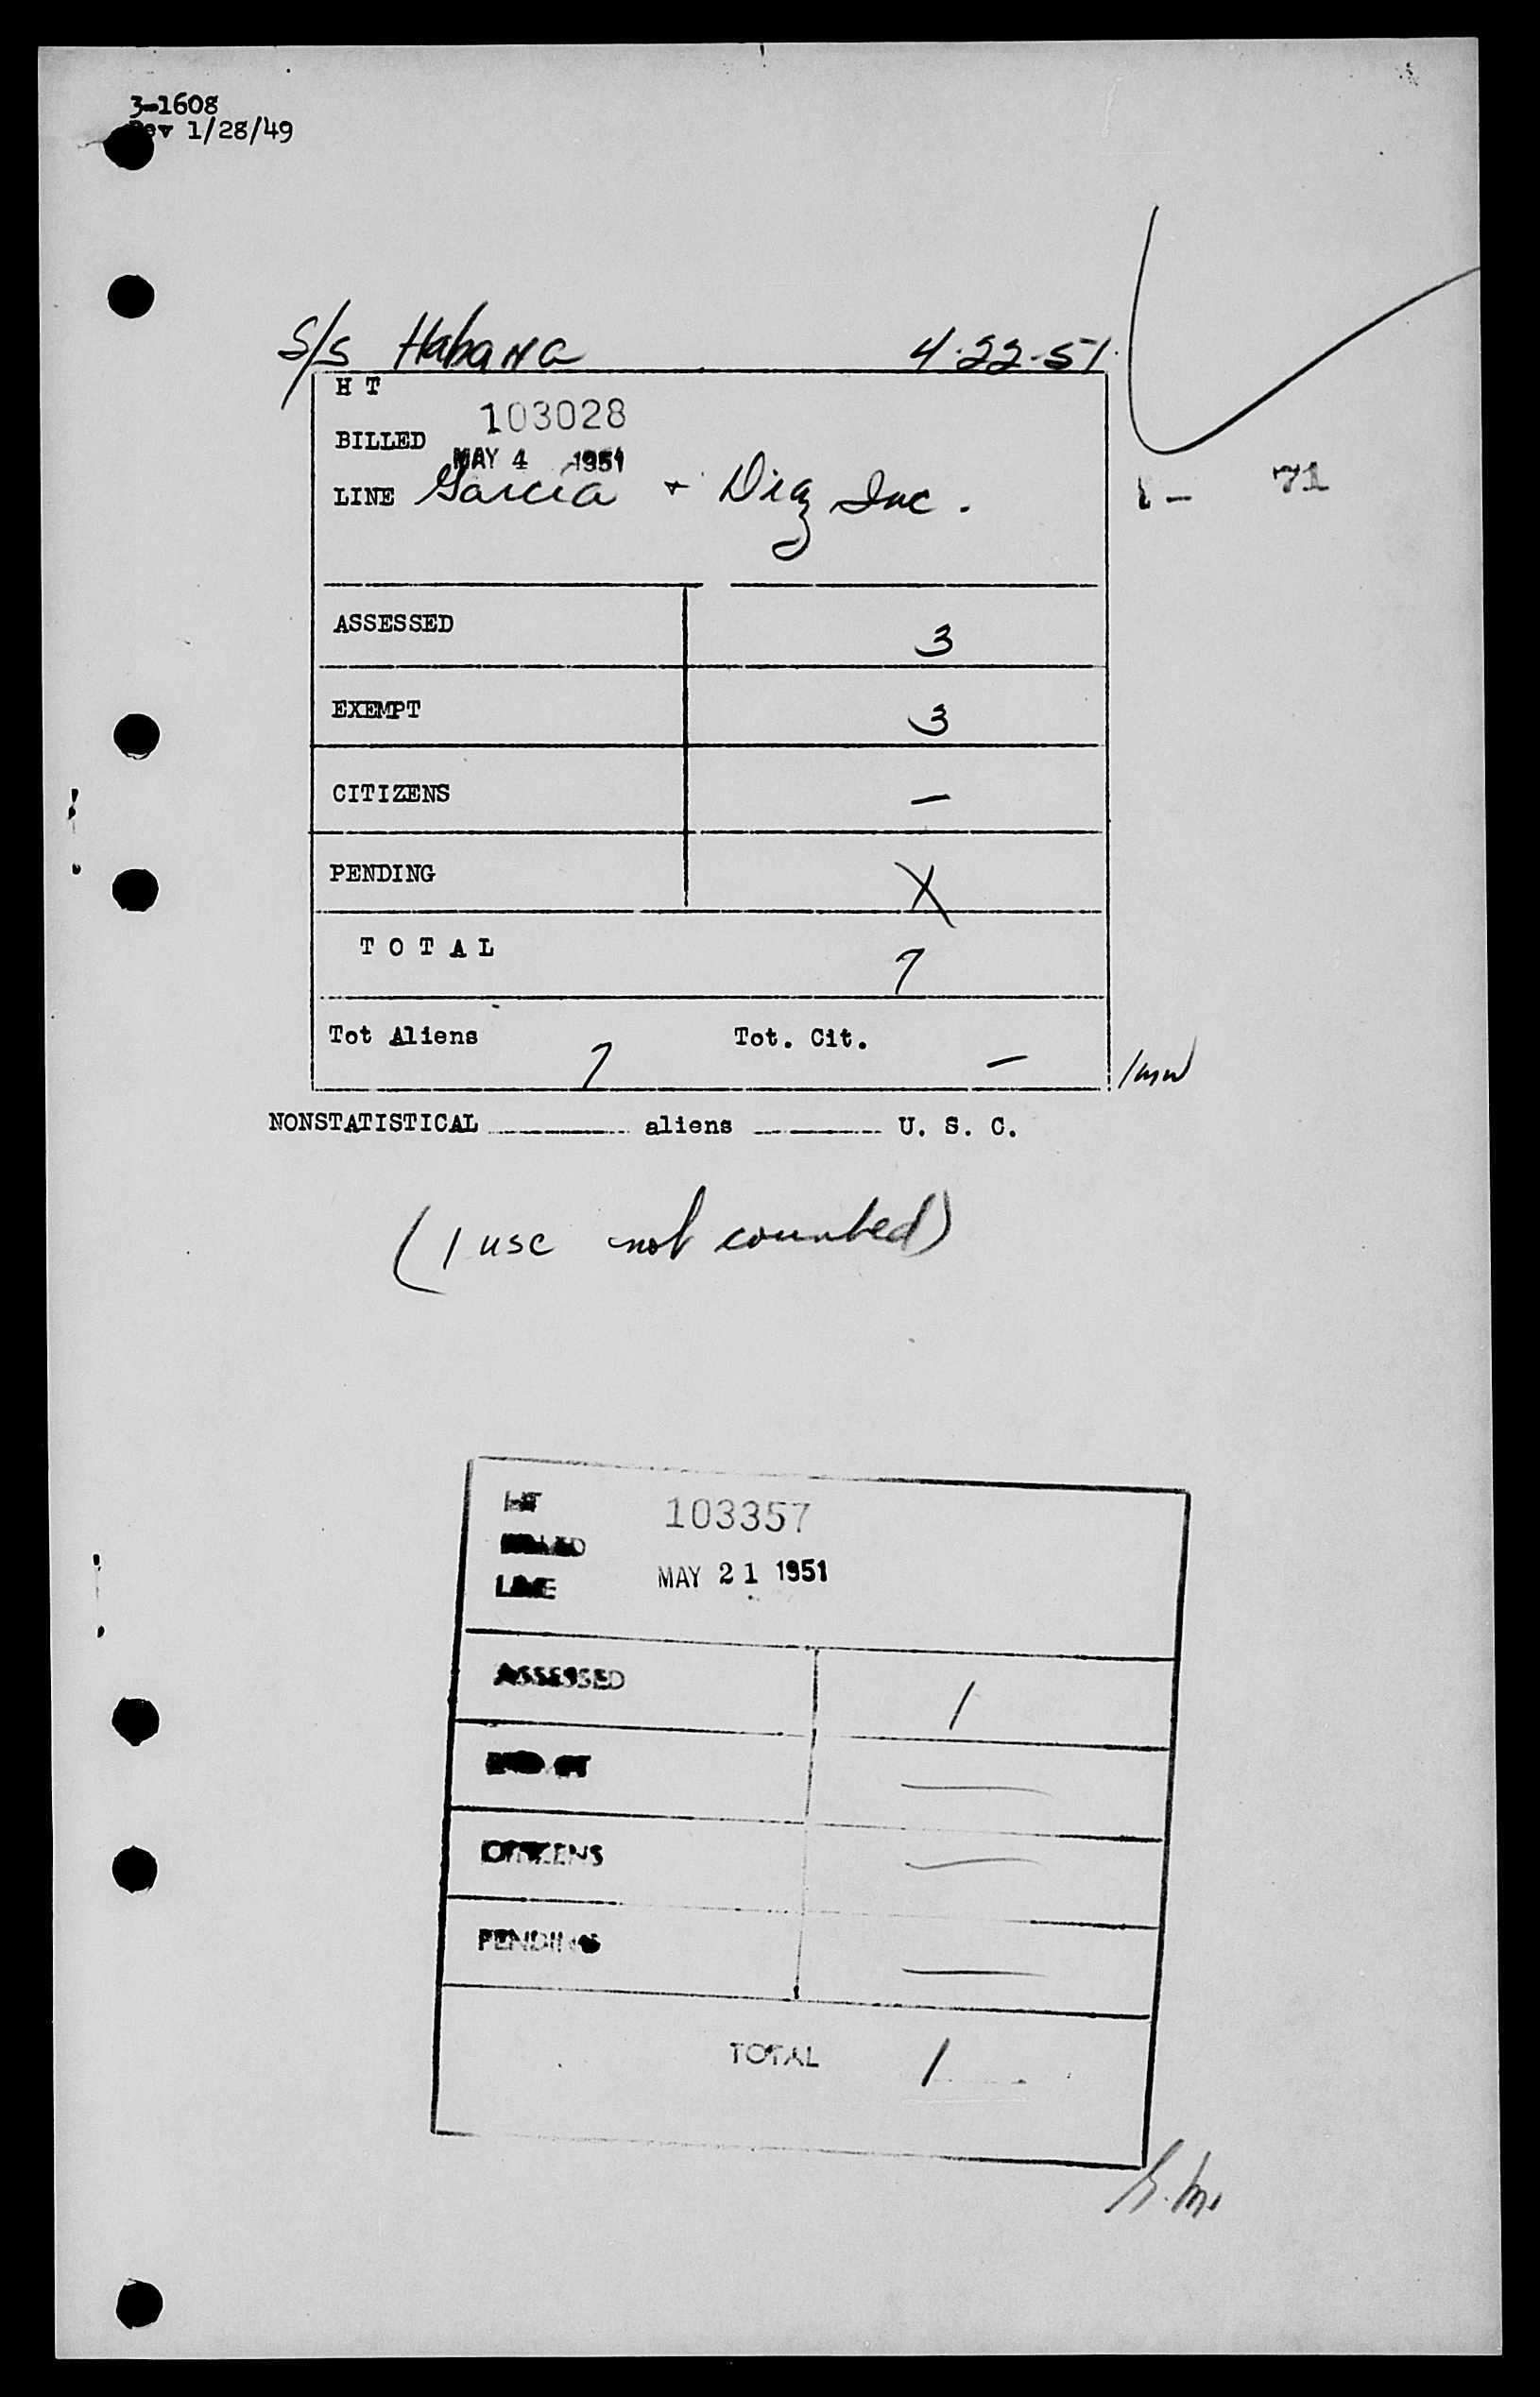 3-1608
Rev 1/28/49
S/S Habana 4-22-51
H T
103028
BILLED
MAY 4 1951
LINE Garcia + Diaz Inc.
71
ASSESSED 3
EXEMPT 3
CITIZENS —
PENDING X
T O T A L 7
Tot Aliens 7 Tot. Cit. —
NONSTATISTICAL aliens U. S. C.
(1 usc not counted)
HT 103357
BILLED
LINE MAY 21 1951
ASSESSED 1
EXEMPT —
CITIZENS —
PENDING —
TOTAL 1